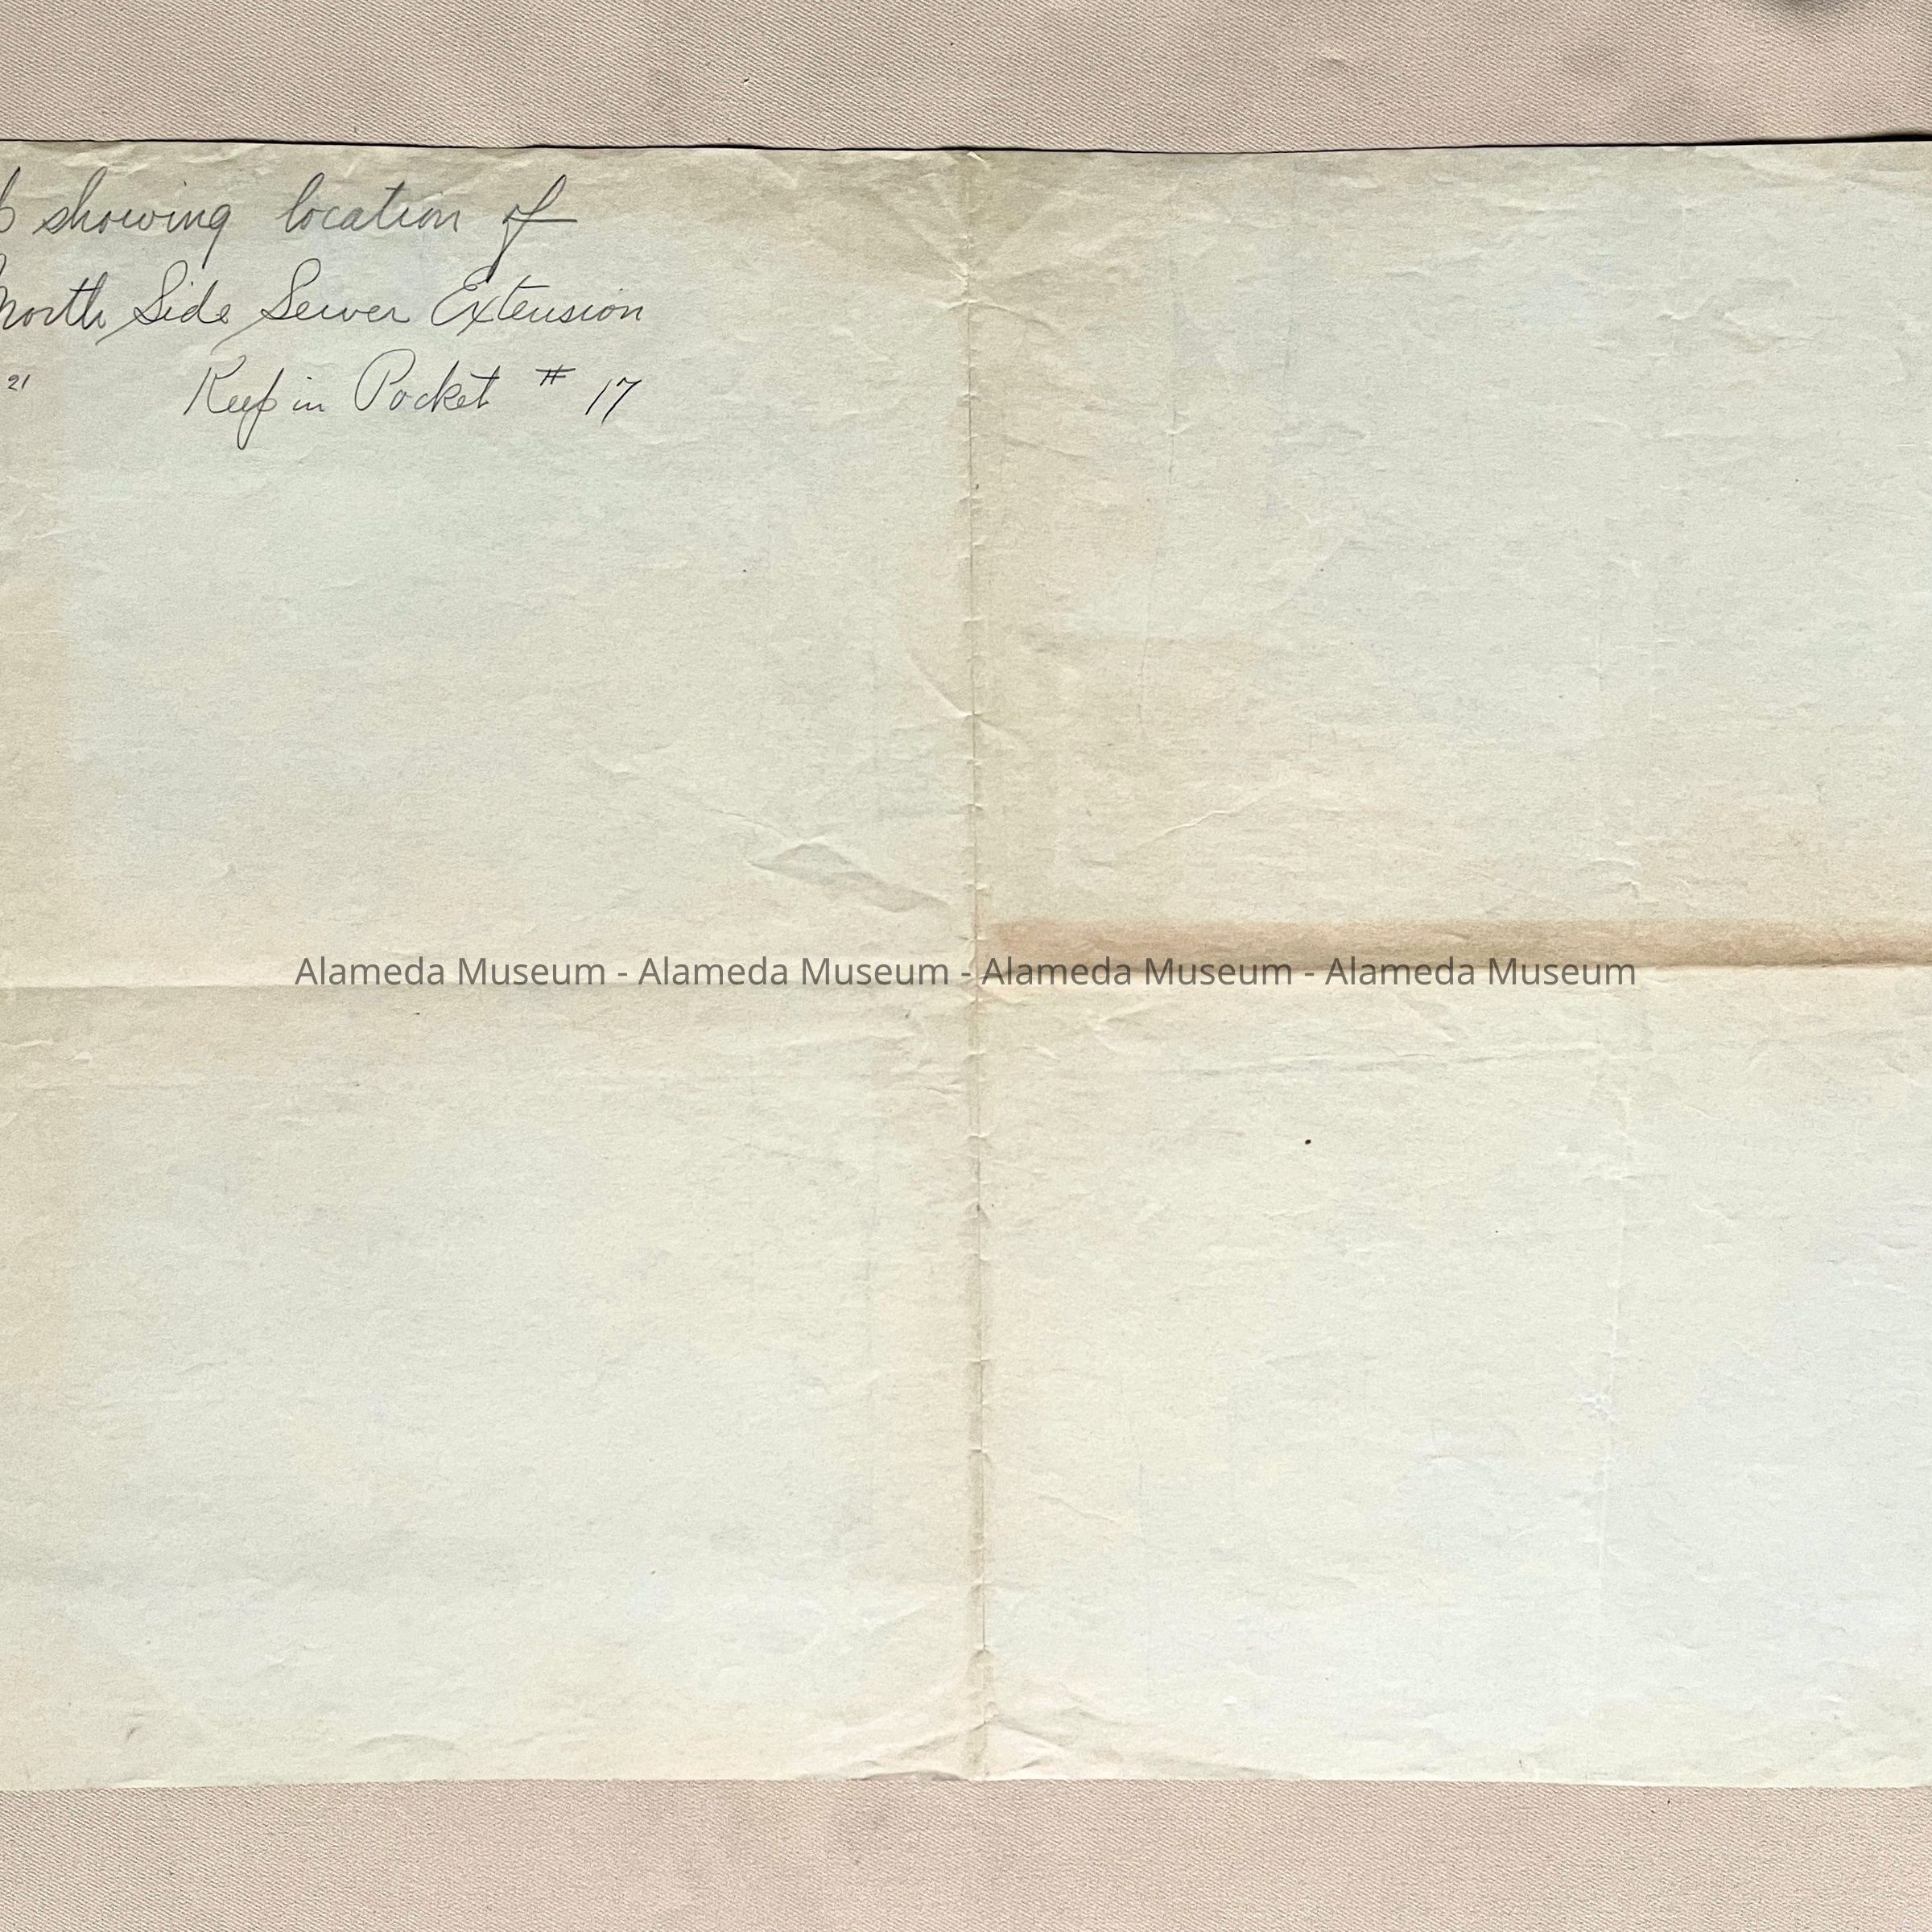 showing location of
North Side Sewer Extension
21 Keep in Pocket # 17
Alameda Museum - Alameda Museum - Alameda Museum - Alameda Museum